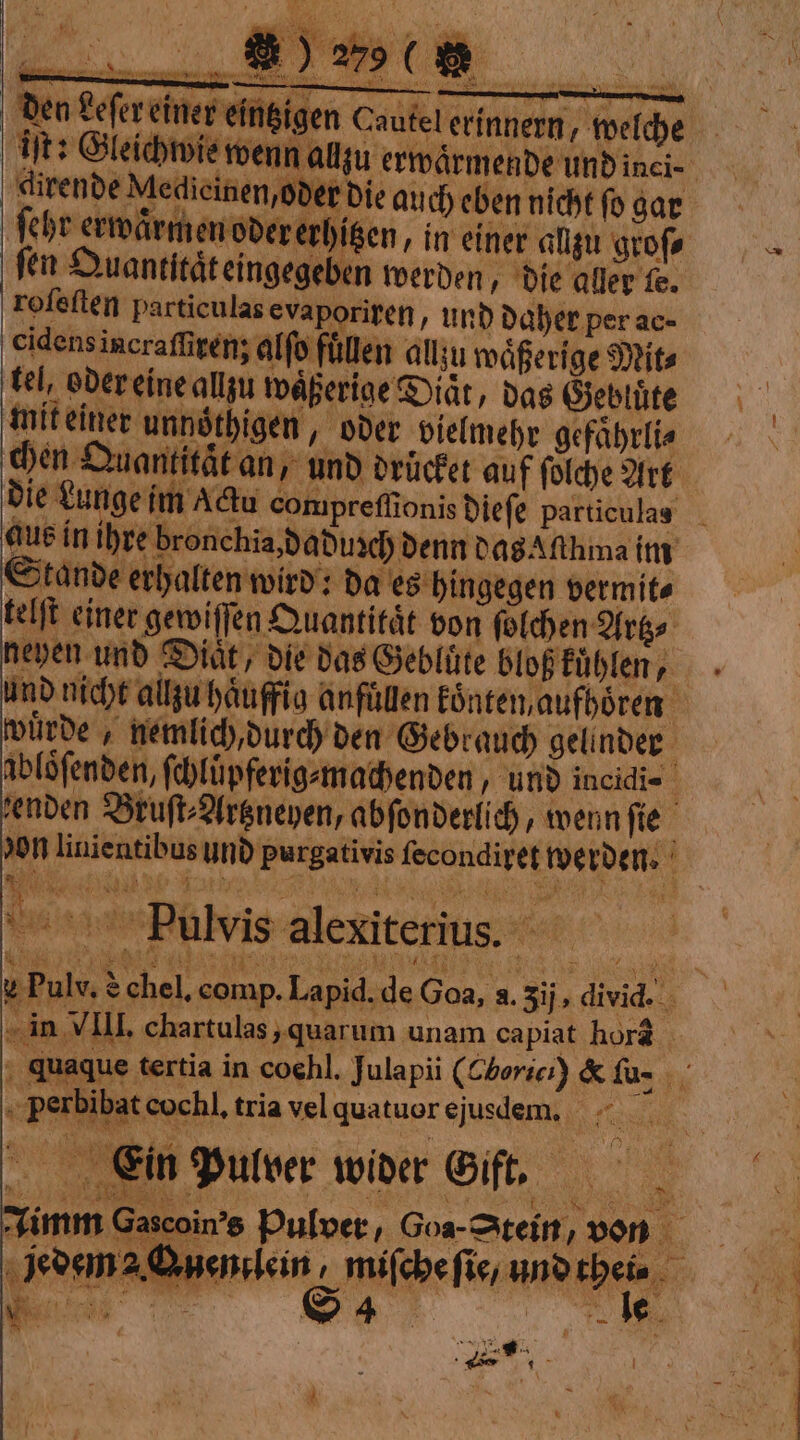 ) 279 (
den Leſer einer eintzigen Cautel erinnern, welche
iſt: Gleichwie wenn allzu erwärmende und inci-
dirende Medicinen, oder die auch eben nicht ſo gar
ſehr erwärmen oder erhitzen, in einer allzu groſ-
ſen Quantität eingegeben werden, die aller ſe-
roſeſten particulas evaporiren, und daher per ac-
cidens incraſſiren; alſo füllen allzu wäßerige Mit-
tel, oder eine allzu wäßerige Diät, das Geblüte
mit einer unnöthigen, oder vielmehr gefährli-
chen Quantität an, und drücket auf ſolche Art
die Lunge im Actu compreſſionis dieſe particulas
aus in ihre bronchia, dadurch denn das Aſthma im
Stande erhalten wird: da es hingegen vermit-
telſt einer gewiſſen Quantität von ſolchen Artz-
neyen und Diät, die das Geblüte bloß kühlen,
und nicht allzu häuffig anfüllen könten, aufhören
würde, nemlich, durch den Gebrauch gelinder
ablöſenden, ſchlüpferig-machenden, und incidi-
renden Bruſt-Artzneyen, abſonderlich, wenn ſie
von linientibus und purgativis ſecondiret werden.
Pulvis alexiterius.
Pulv. è chel. comp. Lapid. de Goa, a. ʒij, divid.
in VIII. chartulas, quarum unam capiat horâ
quaque tertia in cochl. Julapii (Chorici) & ſu-
perbibat cochl. tria vel quatuor ejusdem.
Ein Pulver wider Gift.
Nimm Gascoin's Pulver, Goa-Stein, von
jedem 2 Quentlein, miſche ſie, und thei-
S 4 le